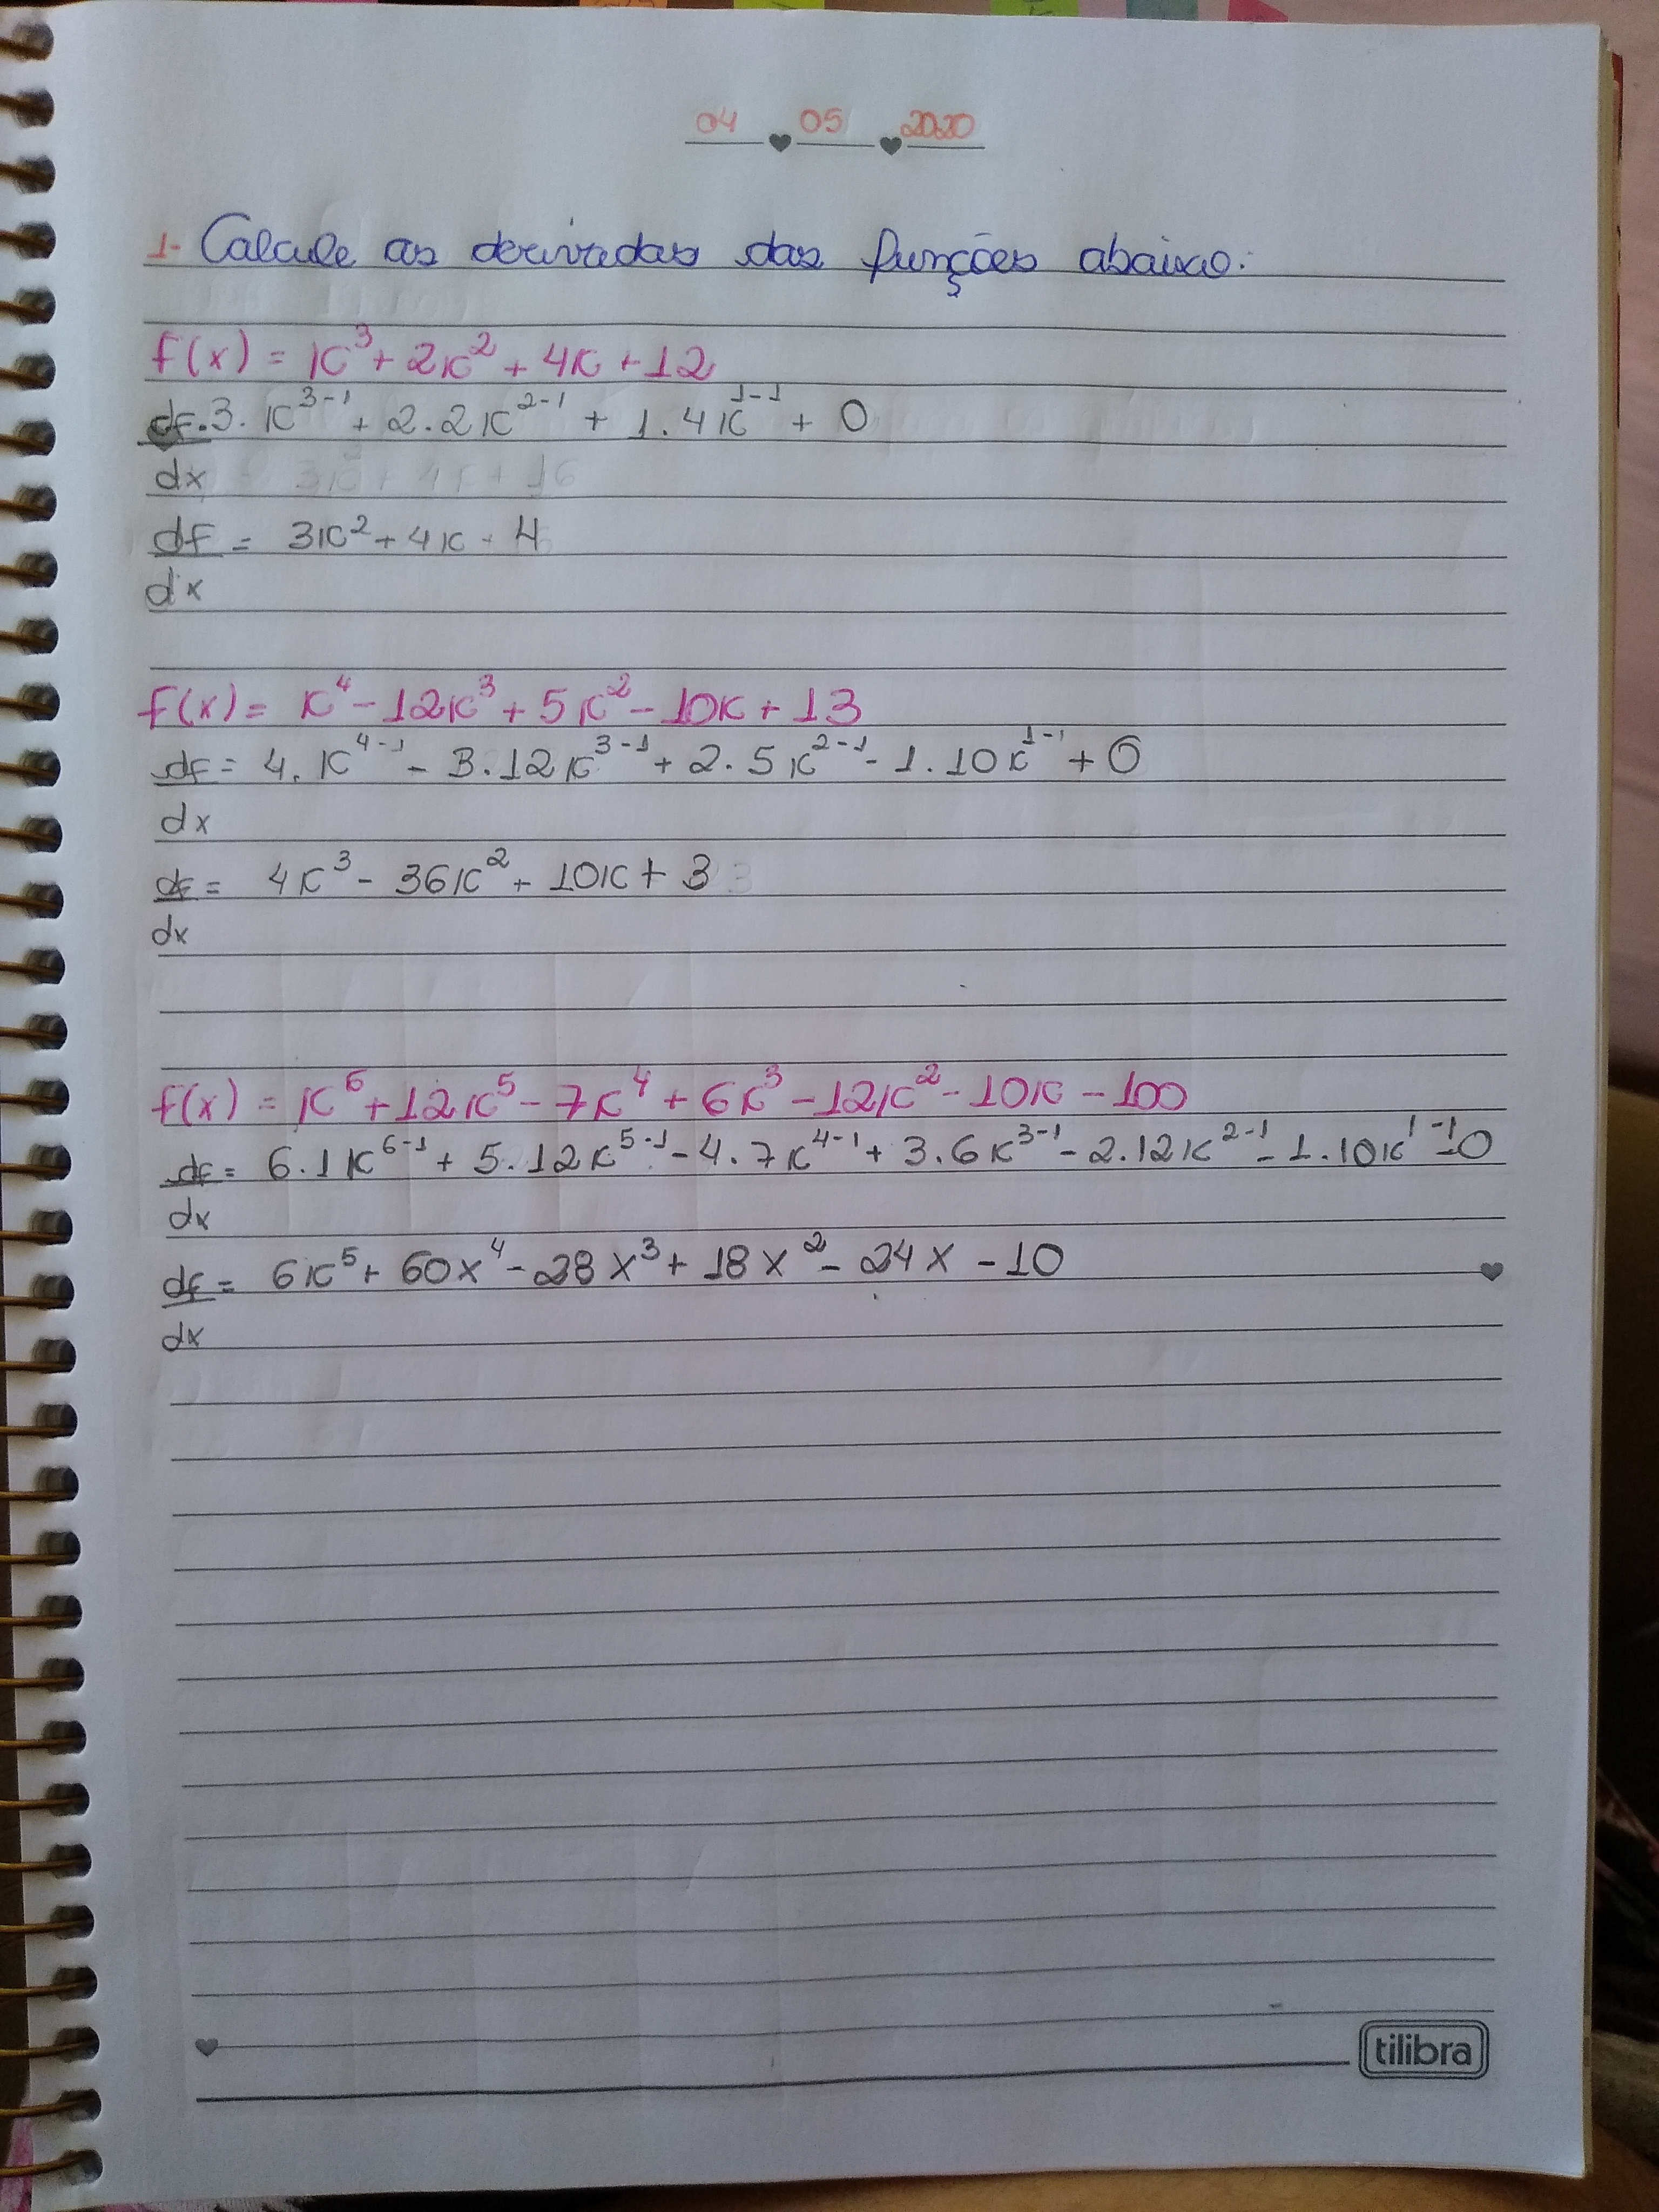 04 05 2020
1- Calcule as derivadas das funções abaixo:
f(x) = x³ + 2x² + 4x + 12
df . 3 . x³⁻¹ + 2.2x²⁻¹ + 1.4x¹⁻¹ + 0
dx
df = 3x² + 4x - 4
dx
f(x) = x⁴ - 12x³ + 5x² - 10x + 13
df = 4. x⁴⁻¹ - 3.12x³⁻¹ + 2.5x²⁻¹ - 1.10x¹⁻¹ + 0
dx
df = 4x³ - 36x² + 10x + 3
dx
f(x) = x⁶ + 12x⁵ - 7x⁴ + 6x³ - 12x² - 10x - 100
df = 6.1x⁶⁻¹ + 5.12x⁵⁻¹ - 4.7x⁴⁻¹ + 3.6x³⁻¹ - 2.12x²⁻¹ - 1.10x¹⁻¹ - 0
dx
df = 6x⁵ + 60x⁴ - 28x³ + 18x² - 24x - 10
dx
tilibra